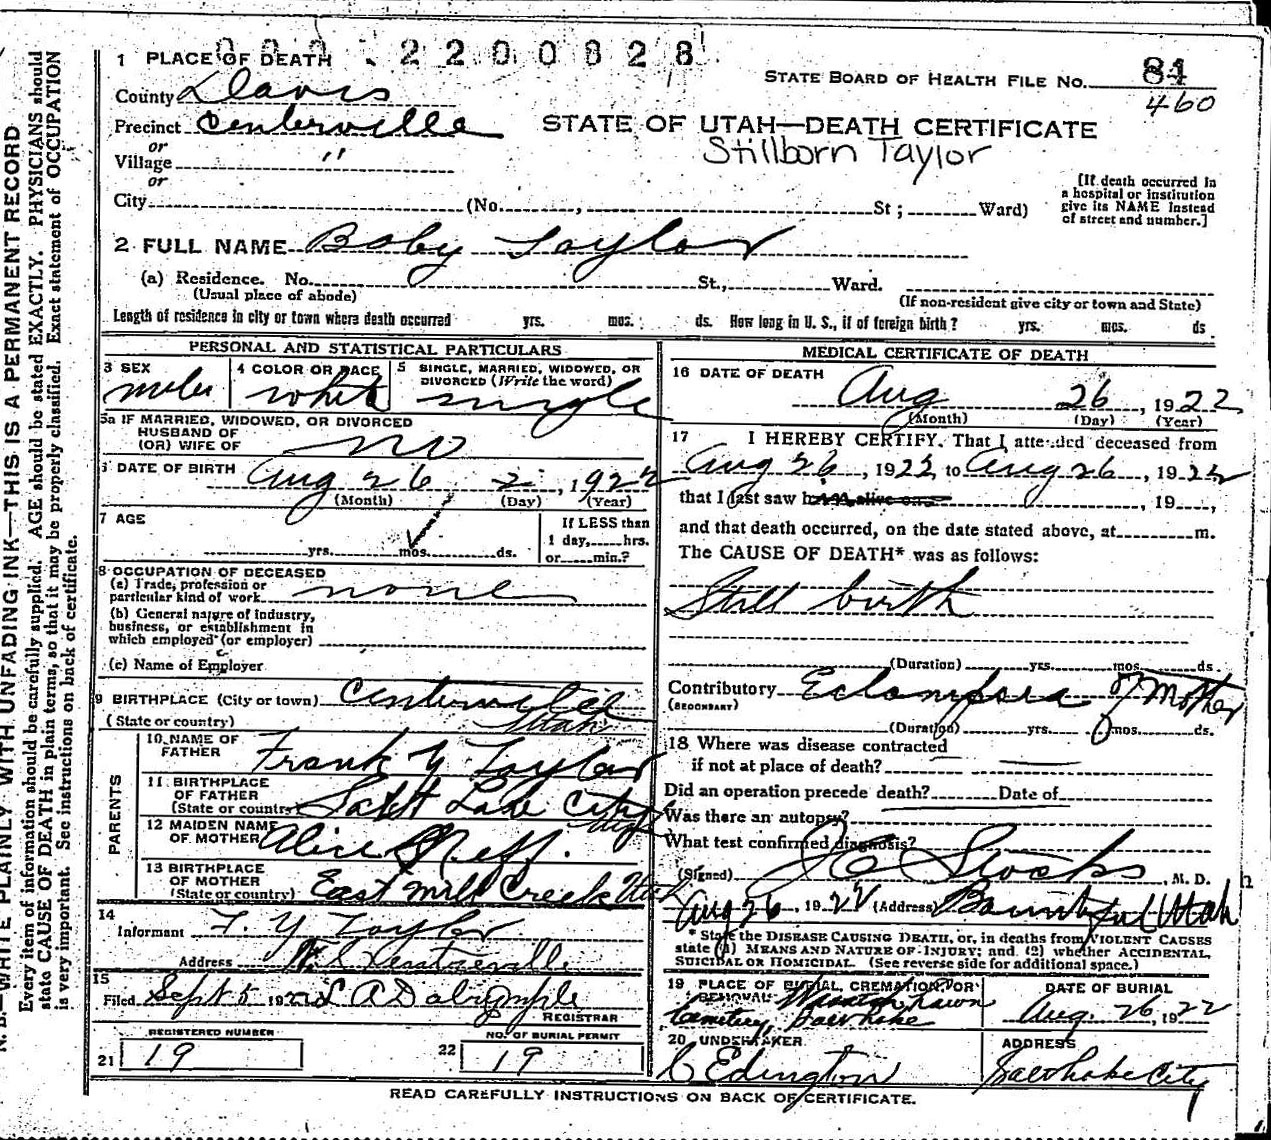 000 2200828
1 PLACE OF DEATH
STATE BOARD OF HEALTH FILE NO. 81
460
County Davis
Precinct Centerville
STATE OF UTAH—DEATH CERTIFICATE
Stillborn Taylor
or
Village "
or
City (No. , St ; Ward)
[If death occurred in
a hospital or institution
give its NAME instead
of street and number.]
2 FULL NAME Baby Taylor
(a) Residence. No. St., Ward.
(Usual place of abode)
(If non-resident give city or town and State)
Length of residence in city or town where death occurred yrs. mos. ds. How long in U. S., if of foreign birth? yrs. mos. ds
PERSONAL AND STATISTICAL PARTICULARS
3 SEX
male
4 COLOR OR RACE
white
5 SINGLE, MARRIED, WIDOWED, OR
DIVORCED (Write the word)
single
5a IF MARRIED, WIDOWED, OR DIVORCED
HUSBAND OF
(OR) WIFE OF no
6 DATE OF BIRTH Aug 26 2, 1922
(Month) (Day) (Year)
7 AGE
yrs. mos. ds.
If LESS than
1 day, hrs.
or min.?
8 OCCUPATION OF DECEASED
(a) Trade, profession or
particular kind of work none
(b) General nature of industry,
business, or establishment in
which employed (or employer)
(c) Name of Employer
9 BIRTHPLACE (City or town) Centerville
(State or country) Utah
PARENTS
10 NAME OF
FATHER Frank Y Taylor
11 BIRTHPLACE
OF FATHER
(State or country) Salt Lake City
12 MAIDEN NAME
OF MOTHER Alice Neff.
13 BIRTHPLACE
OF MOTHER
(State or country) East Mill Creek Utah
14
Informant F. Y Taylor
Address Centreville
15
Filed Sept 5 192 L A Dalrymple
REGISTRAR
REGISTERED NUMBER
21 19
NO. OF BURIAL PERMIT
22 19
MEDICAL CERTIFICATE OF DEATH
16 DATE OF DEATH
Aug 26, 1922
(Month) (Day) (Year)
17 I HEREBY CERTIFY, That I attended deceased from
Aug 26, 1922, to Aug 26, 1922
that I last saw him alive on , 19 ,
and that death occurred, on the date stated above, at m.
The CAUSE OF DEATH* was as follows:
Still birth
(Duration) yrs. mos. ds
Contributory Eclampsia of Mother
(SECONDARY)
(Duration) yrs. mos. ds.
18 Where was disease contracted
if not at place of death?
Did an operation precede death? Date of
Was there an autopsy?
What test confirmed diagnosis?
(Signed) Stocks, M. D.
Aug 26, 192 (Address) Bountiful Utah
* State the DISEASE CAUSING DEATH, or, in deaths from VIOLENT CAUSES
state (1) MEANS AND NATURE OF INJURY; and (2) whether ACCIDENTAL,
SUICIDAL OR HOMICIDAL. (See reverse side for additional space.)
19 PLACE OF BURIAL, CREMATION, OR
REMOVAL Wasatch Lawn
Cemetery, Salt Lake
DATE OF BURIAL
Aug. 26, 1922
20 UNDERTAKER
C Edington
ADDRESS
Salt Lake City
READ CAREFULLY INSTRUCTIONS ON BACK OF CERTIFICATE.
N. B.—WRITE PLAINLY WITH UNFADING INK—THIS IS A PERMANENT RECORD
Every item of information should be carefully supplied. AGE should be stated EXACTLY. PHYSICIANS should
state CAUSE OF DEATH in plain terms, so that it may be properly classified. Exact statement of OCCUPATION
is very important. See instructions on back of certificate.